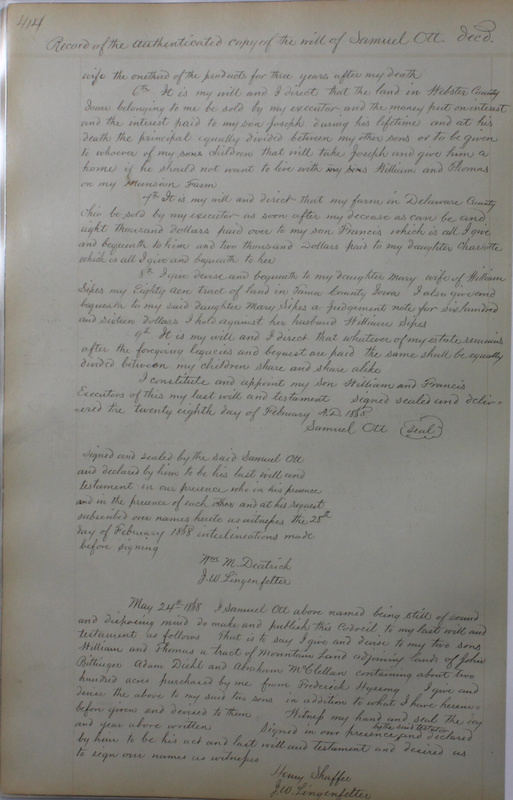 414
Record of the authenticated copy of the will of Samuel Ott Decd.
wife the one third of the products for three years after my death
6th It is my will and I direct that the land in Webster County
Iowa belonging to me be sold by my executor and the money put on interest
and the interest paid to my son Joseph during his lifetime and at his
death the principal equally divided between my other sons or to be given
to whoever of my sons children that will take Joseph and give him a
home if he should not want to live with my sons William and Thomas
on my Mansion Farm
7th It is my will and direct that my farm in Delaware County
Ohio be sold by my executor as soon after my decease as can be and
eight thousand dollars paid over to my son Francis which is all I give
and bequeath to him and two thousand Dollars paid to my daughter Charlotte
which is all I give and bequeath to her
8th I give devise and bequeath to my daughter Mary wife of William
Sipes my Eighty acre tract of land in Tama County Iowa I also give and
bequeath to my said daughter Mary Sipes a Judgement note for six hundred
and sixteen dollars I hold against her husband William Sipes
9th It is my will and I direct that whatever of my estate remains
after the foregoing legacies and bequest are paid the same shall be equally
divided between my children share and share alike
I constitute and appoint my son William and Francis
Executors of this my last will and testament signed sealed and deliv-
ered the twenty eighth day of February A.D. 1868
Samuel Ott (seal)
Signed and sealed by the said Samuel Ott
and declared by him to be his last will and
testament in our presence who in his presence
and in the presence of each other and at his request
subscribed our names hereto as witness the 28th
day of February 1868 interlineations made
before signing
Wm M. Deatrich
J. W. Lingenfelter
May 24th 1868 I Samuel Ott above named being still of sound
and disposing mind do make and publish this Codocil to my last will and
testament as follows That is to say I give and devise to my two sons
William and Thomas a tract of Mountain Land adjoining lands of John
Bittinger Adam Diehl and Abraham McClellan containing about two
hundred acres purchased by me from Frederick Hyssong I give and
devise the above to my said two sons in addition to what I have herein-
before given and devised to them Witness my hand and seal the day
and year above written Signed in our presence by the said testator and declared
by him to be his act and last will and testament and desired us
to sign our names as witnesses
Henry Shaffer
J. W. Lingenfelter